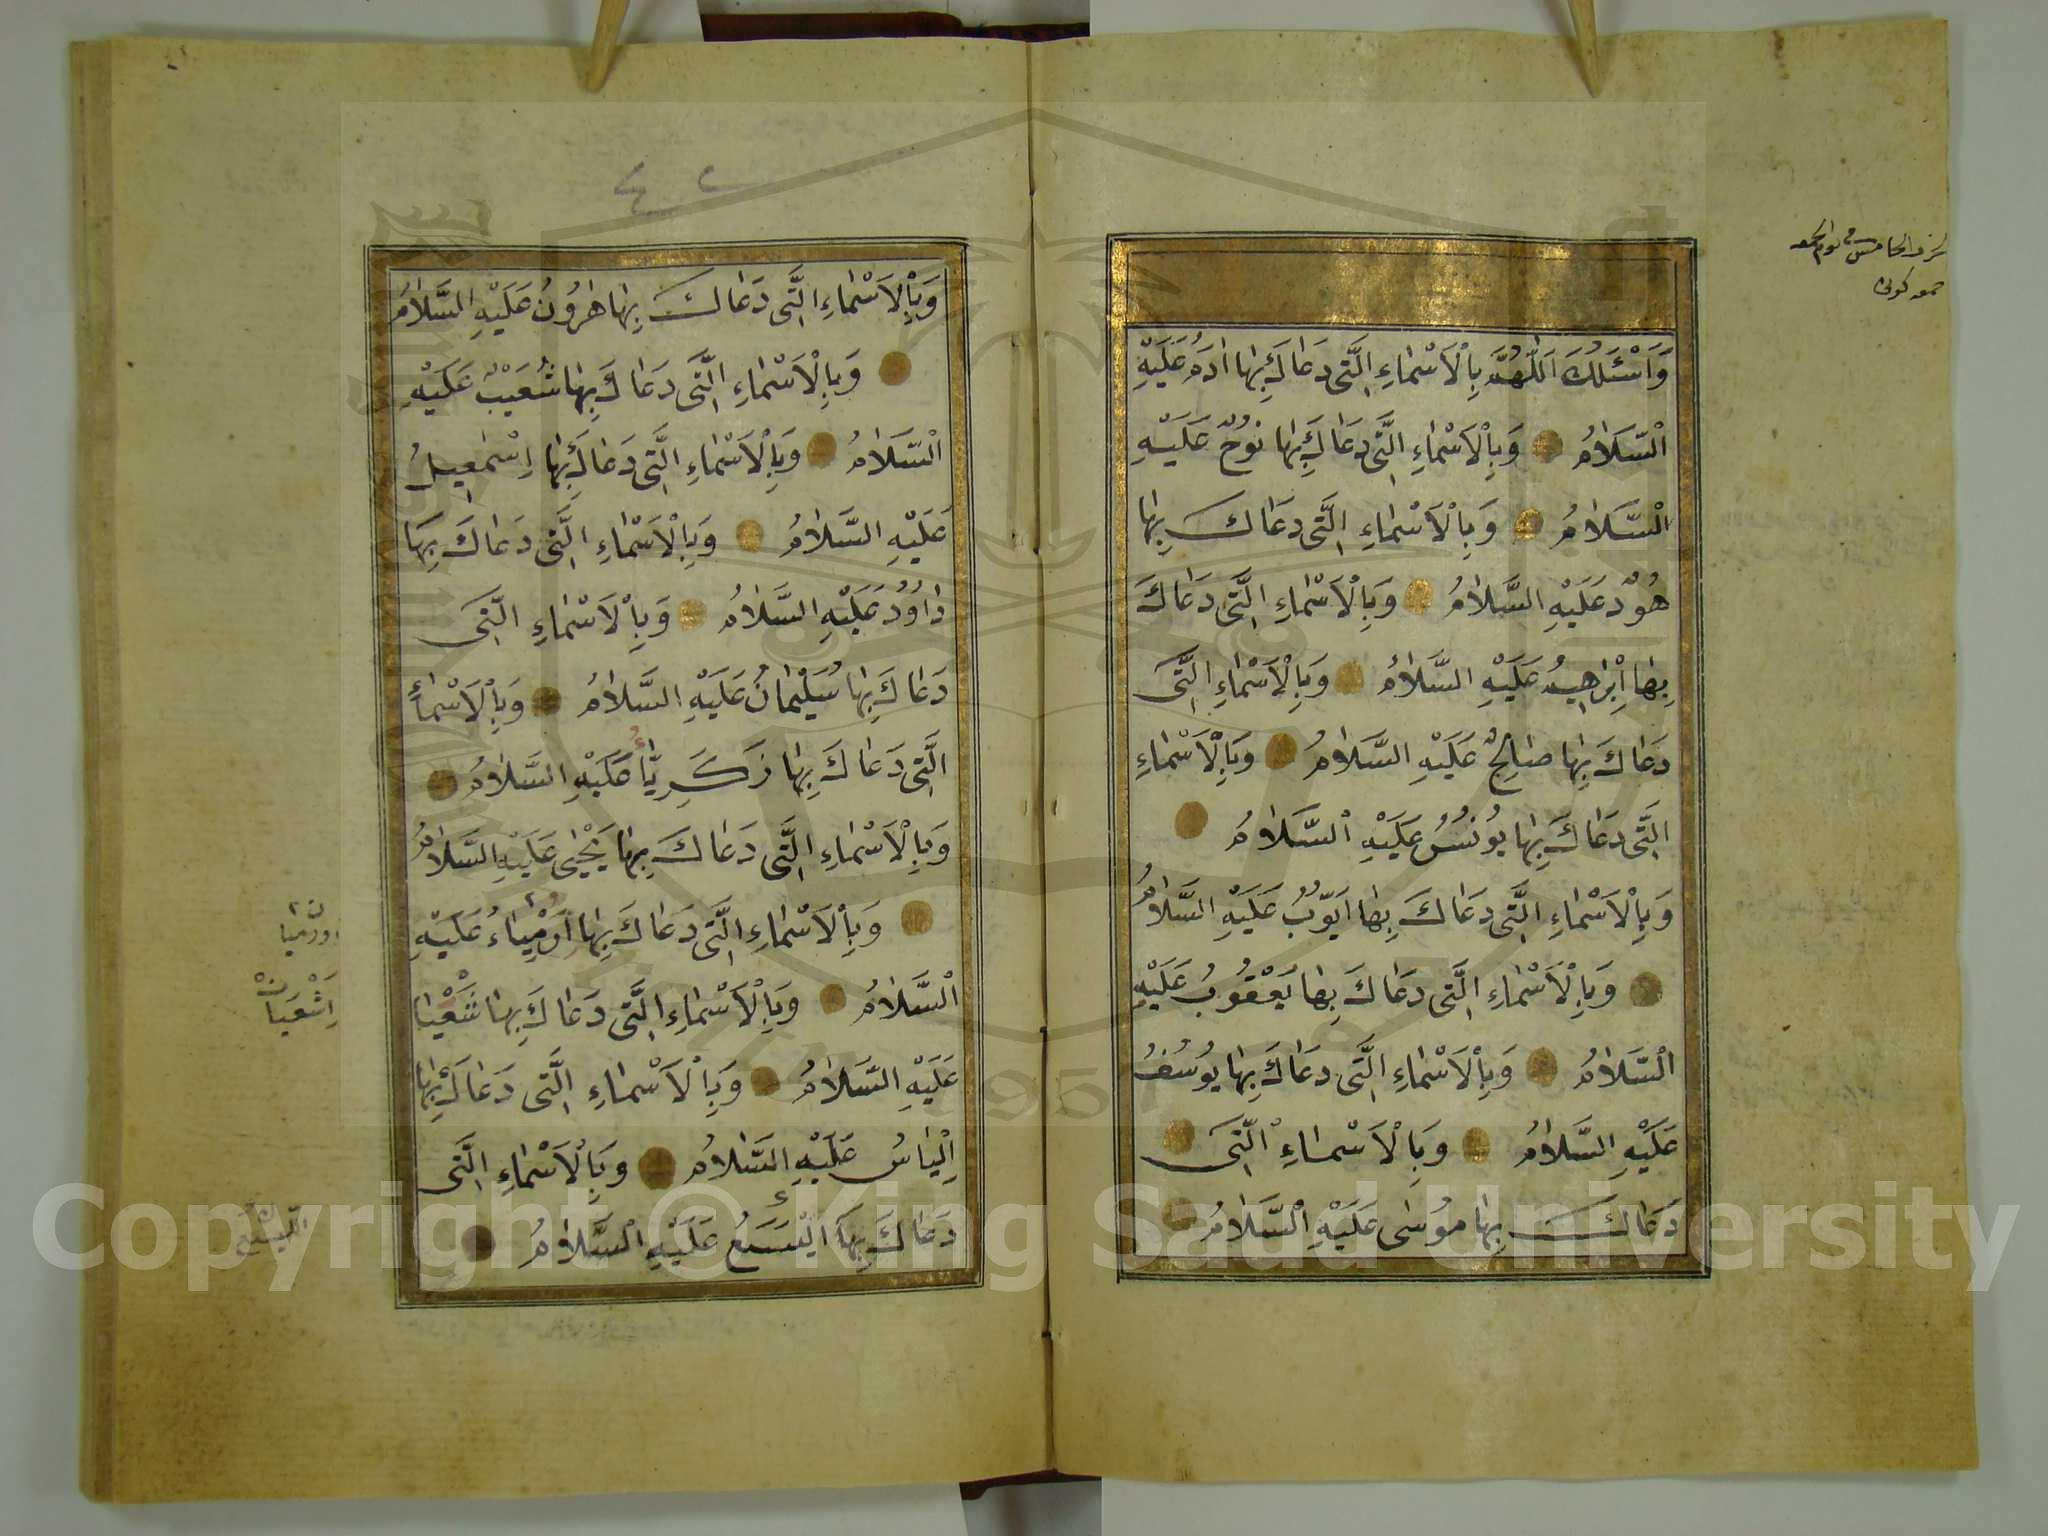 وَاَسْئَلُكَ اَللّٰهُمَّ بِالْاَسْمَاءِ الَّتِى دَعَاكَ بِهَا اٰدَمُ عَلَيْهِ
السَّلَامُ وَبِالْاَسْمَاءِ الَّتِى دَعَاكَ بِهَا نُوحٌ عَلَيْهِ
السَّلَامُ وَبِالْاَسْمَاءِ الَّتِى دَعَاكَ بِهَا
هُوْدٌ عَلَيْهِ السَّلَامُ وَبِالْاَسْمَاءِ الَّتِى دَعَاكَ
بِهَا اِبْرٰهِيمُ عَلَيْهِ السَّلَامُ وَبِالْاَسْمَاءِ الَّتِى
دَعَاكَ بِهَا صَالِحٌ عَلَيْهِ السَّلَامُ وَبِالْاَسْمَاءِ
الَّتِى دَعَاكَ بِهَا يُونُسُ عَلَيْهِ السَّلَامُ
وَبِالْاَسْمَاءِ الَّتِى دَعَاكَ بِهَا اَيُّوبُ عَلَيْهِ السَّلَامُ
وَبِالْاَسْمَاءِ الَّتِى دَعَاكَ بِهَا يَعْقُوبُ عَلَيْهِ
السَّلَامُ وَبِالْاَسْمَاءِ الَّتِى دَعَاكَ بِهَا يُوسُفُ
عَلَيْهِ السَّلَامُ وَبِالْاَسْمَاءِ الَّتِى
دَعَاكَ بِهَا مُوسٰى عَلَيْهِ السَّلَامُ
وَبِالْاَسْمَاءِ الَّتِى دَعَاكَ بِهَا هٰرُونُ عَلَيْهِ السَّلَامُ
وَبِالْاَسْمَاءِ الَّتِى دَعَاكَ بِهَا شُعَيْبٌ عَلَيْهِ
السَّلَامُ وَبِالْاَسْمَاءِ الَّتِى دَعَاكَ بِهَا اِسْمٰعِيلُ
عَلَيْهِ السَّلَامُ وَبِالْاَسْمَاءِ الَّتِى دَعَاكَ بِهَا
دَاوُدُ عَلَيْهِ السَّلَامُ وَبِالْاَسْمَاءِ الَّتِى
دَعَاكَ بِهَا سُلَيْمَانُ عَلَيْهِ السَّلَامُ وَبِالْاَسْمَاءِ
الَّتِى دَعَاكَ بِهَا زَكَرِيَّاءُ عَلَيْهِ السَّلَامُ
وَبِالْاَسْمَاءِ الَّتِى دَعَاكَ بِهَا يَحْيٰى عَلَيْهِ السَّلَامُ
وَبِالْاَسْمَاءِ الَّتِى دَعَاكَ بِهَا اَرْمِيَاءُ عَلَيْهِ
السَّلَامُ وَبِالْاَسْمَاءِ الَّتِى دَعَاكَ بِهَا شَعْيَا
عَلَيْهِ السَّلَامُ وَبِالْاَسْمَاءِ الَّتِى دَعَاكَ بِهَا
اِلْيَاسُ عَلَيْهِ السَّلَامُ وَبِالْاَسْمَاءِ الَّتِى
دَعَاكَ بِهَا الْيَسَعُ عَلَيْهِ السَّلَامُ
اِشْعَيَا ن
Copyright © King Saud University
1957